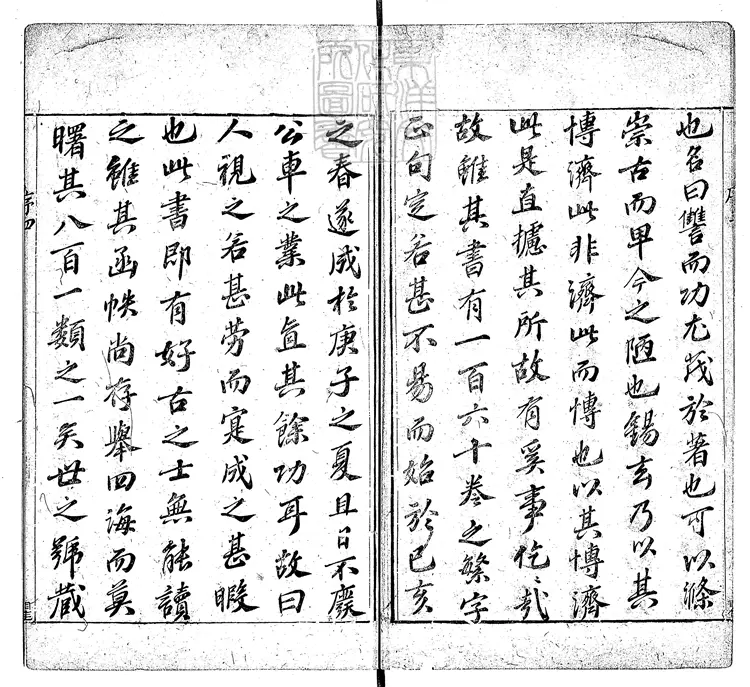 也名曰讐而功尤茂於著也可以滌
崇古而卑今之陋也錫玄乃以其
博濟此非濟此而博也以其博濟
此是直攄其所故有奚事仡〻哉
故雖其書有一百六十卷之繁字
正句定若甚不易而始於己亥
之春遂成於庚子之夏且日不廢
公車之業此直其餘功耳故曰
人視之若甚勞而寔成之甚暇
也此書即有好古之士無能讀
之雖其函帙尚存舉四海而莫
曙其八百一類之一矣世之號藏
序四